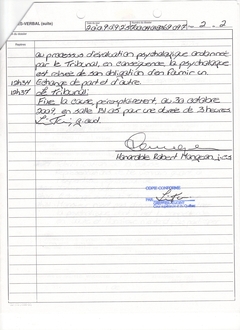 VERBAL (suite)
2 - 2
au processus d'évaluation psychologique ordonnée
par le Tribunal, en conséquence, la psychologue
est relevée de son obligation d'en fournir un.
Échange de part et d'autre.
Le Tribunal:
Fixe la cause péremptoirement au 30 octobre
2009, en salle B1.05 pour une durée de 3 heures.
Honorable Robert Mongeon j.c.s
COPIE CONFORME
PAR